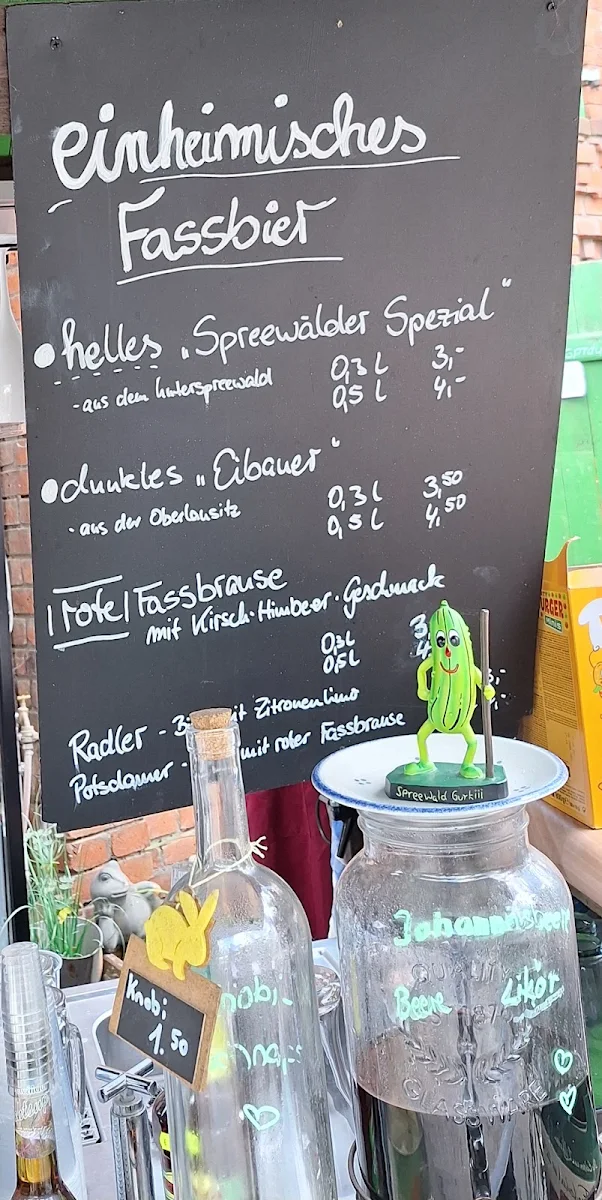 einheimisches
Fassbier
helles „Spreewälder Spezial"
-aus dem hinterspreewald
0,3 l 3,-
0,5 l 4,-
dunkles „Eibauer"
-aus der Oberlausitz
0,3 l 3,50
0,5 l 4,50
rote Fassbrause
mit Kirsch-Himbeer-Geschmack
0,3l 3
0,5l 4
Radler - Zitronenlimo
Potsdamer - mit roter Fassbrause
SpreeWald Gurkiii
Knobi
1.50
Beere Likör
QUALITY